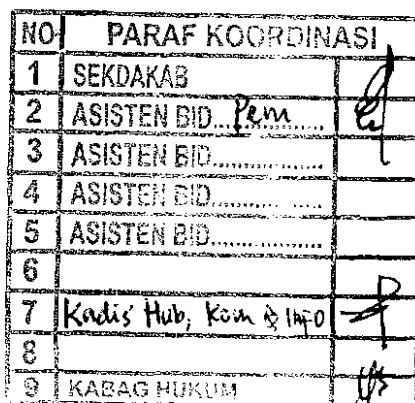 NO PARAF KOORDINASI
1 SEKDAKAB
2 ASISTEN BID. Pem
3 ASISTEN BID.............
4 ASISTEN BID.............
5 ASISTEN BID.............
6
7 Kadis Hub, Kom & Info
8
9 KABAG HUKUM